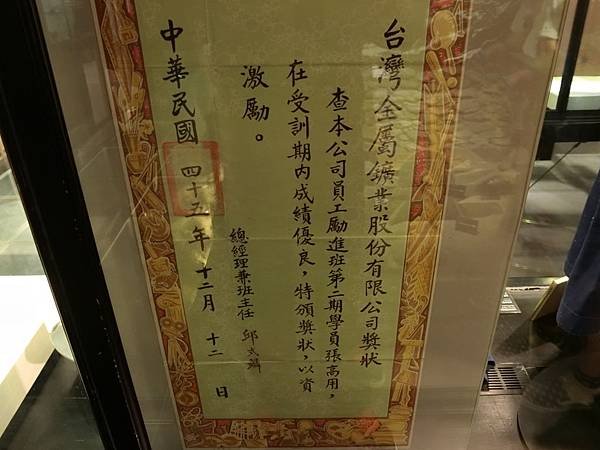 台灣金屬鑛業股份有限公司獎狀
查本公司員工勵進班第二期學員張高用，
在受訓期內成績優良，特頒獎狀，以資
激勵。
總經理兼班主任 邱
中華民國四十五年十二月十二日